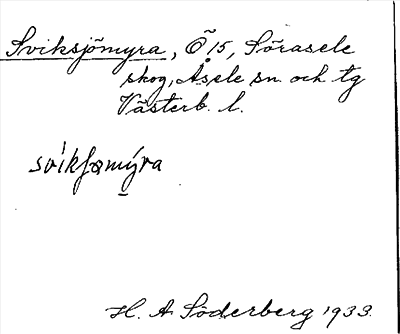 Sviksjömyra, Ö 15, Sörasele
skog, Åsele sn och tg
Västerb. l.
svikʃɷmýra
H. A. Söderberg 1933.